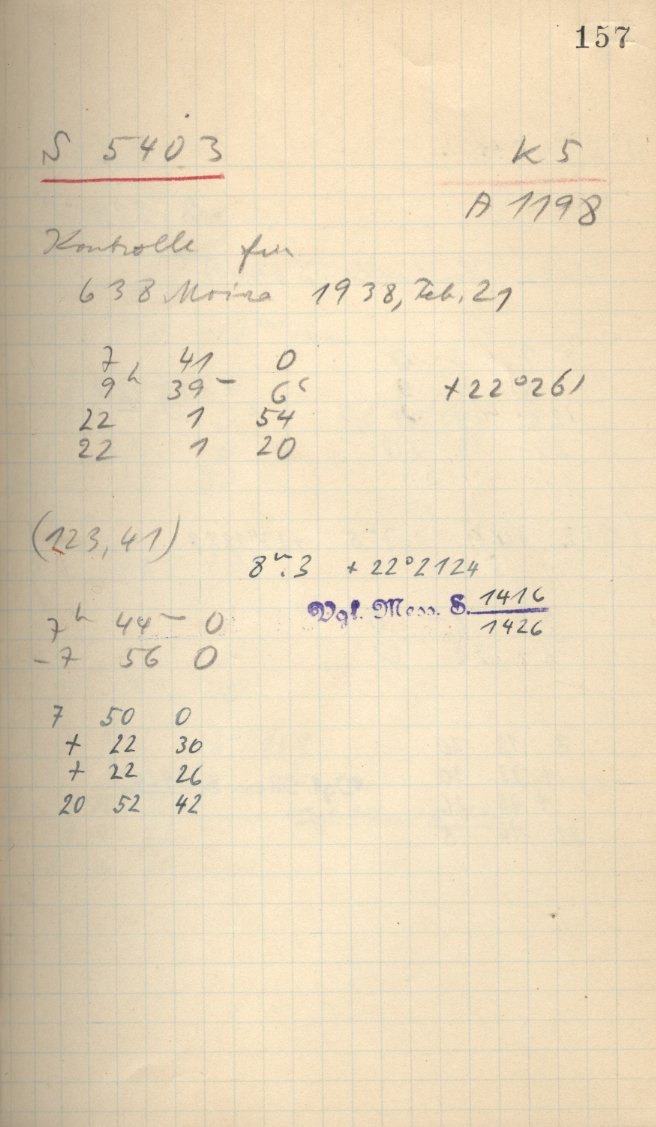 157
S 5403 K5
A 1198
Kontrolle für
638 Moira 1938, Feb. 21
7 41 0
9h 39m 6s +22°261
22 1 54
22 1 20
(123,41)
8m.3 +22°2124
7h 44m 0 Vgl. Mess. S. 1416
1426
-7 56 0
7 50 0
+ 22 30
+ 22 26
20 52 42